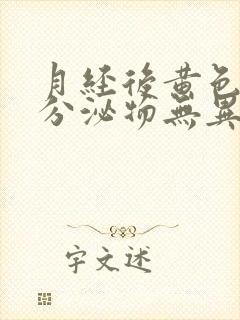 月經後黃色
分泌物無異
字文述